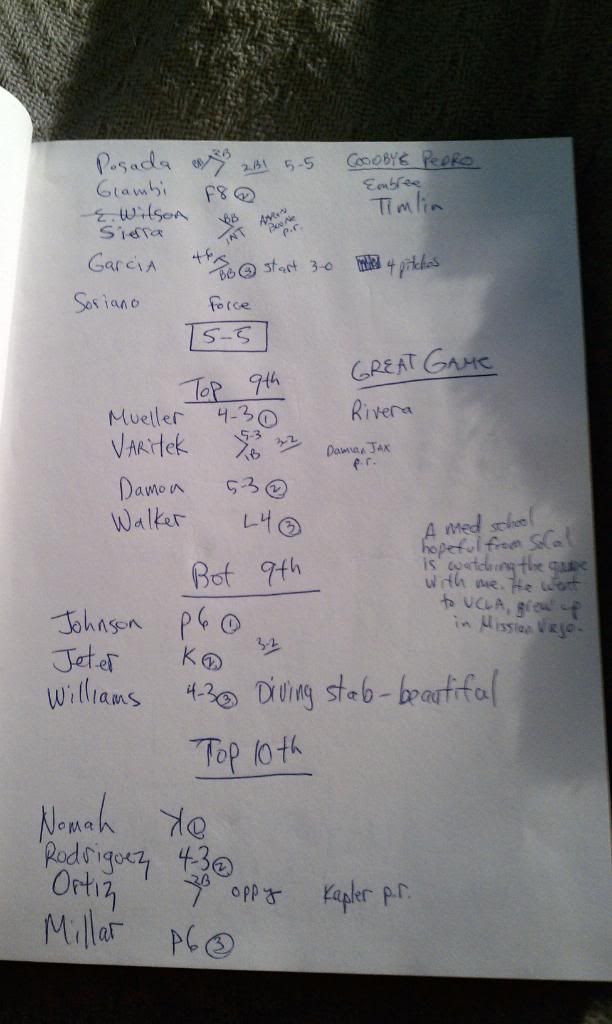 Posada 2B 2BI 5-5 GOODBYE PEDRO
Giambi F8 2 Embree
E. Wilson BB AARON BOONE p.r. Timlin
Sierra INT
Garcia BB 3 start 3-0 4 pitches
Soriano Force
5-5
GREAT GAME
Top 9th
Mueller 4-3 1 Rivera
VARitek 5-3 1B 3-2 Damian JAX p.r.
Damon 5-3 2
Walker L4 3
A med school
hopeful from SoCal
is watching the game
with me. He went
to UCLA, grew up
in Mission Viejo.
Bot 9th
Johnson P6 1
Jeter K 2 3-2
Williams 4-3 3 Diving stab - beautiful
Top 10th
Nomah K 1
Rodriguez 4-3 2
Ortiz 2B oppy Kapler p.r.
Millar P6 3